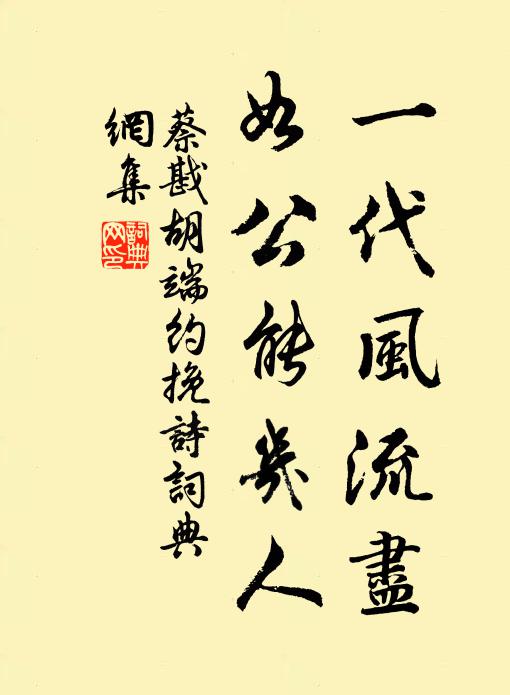 一代風流盡
如公能幾人
蔡戡胡端約挽詩詞典
網集
詞典
网印